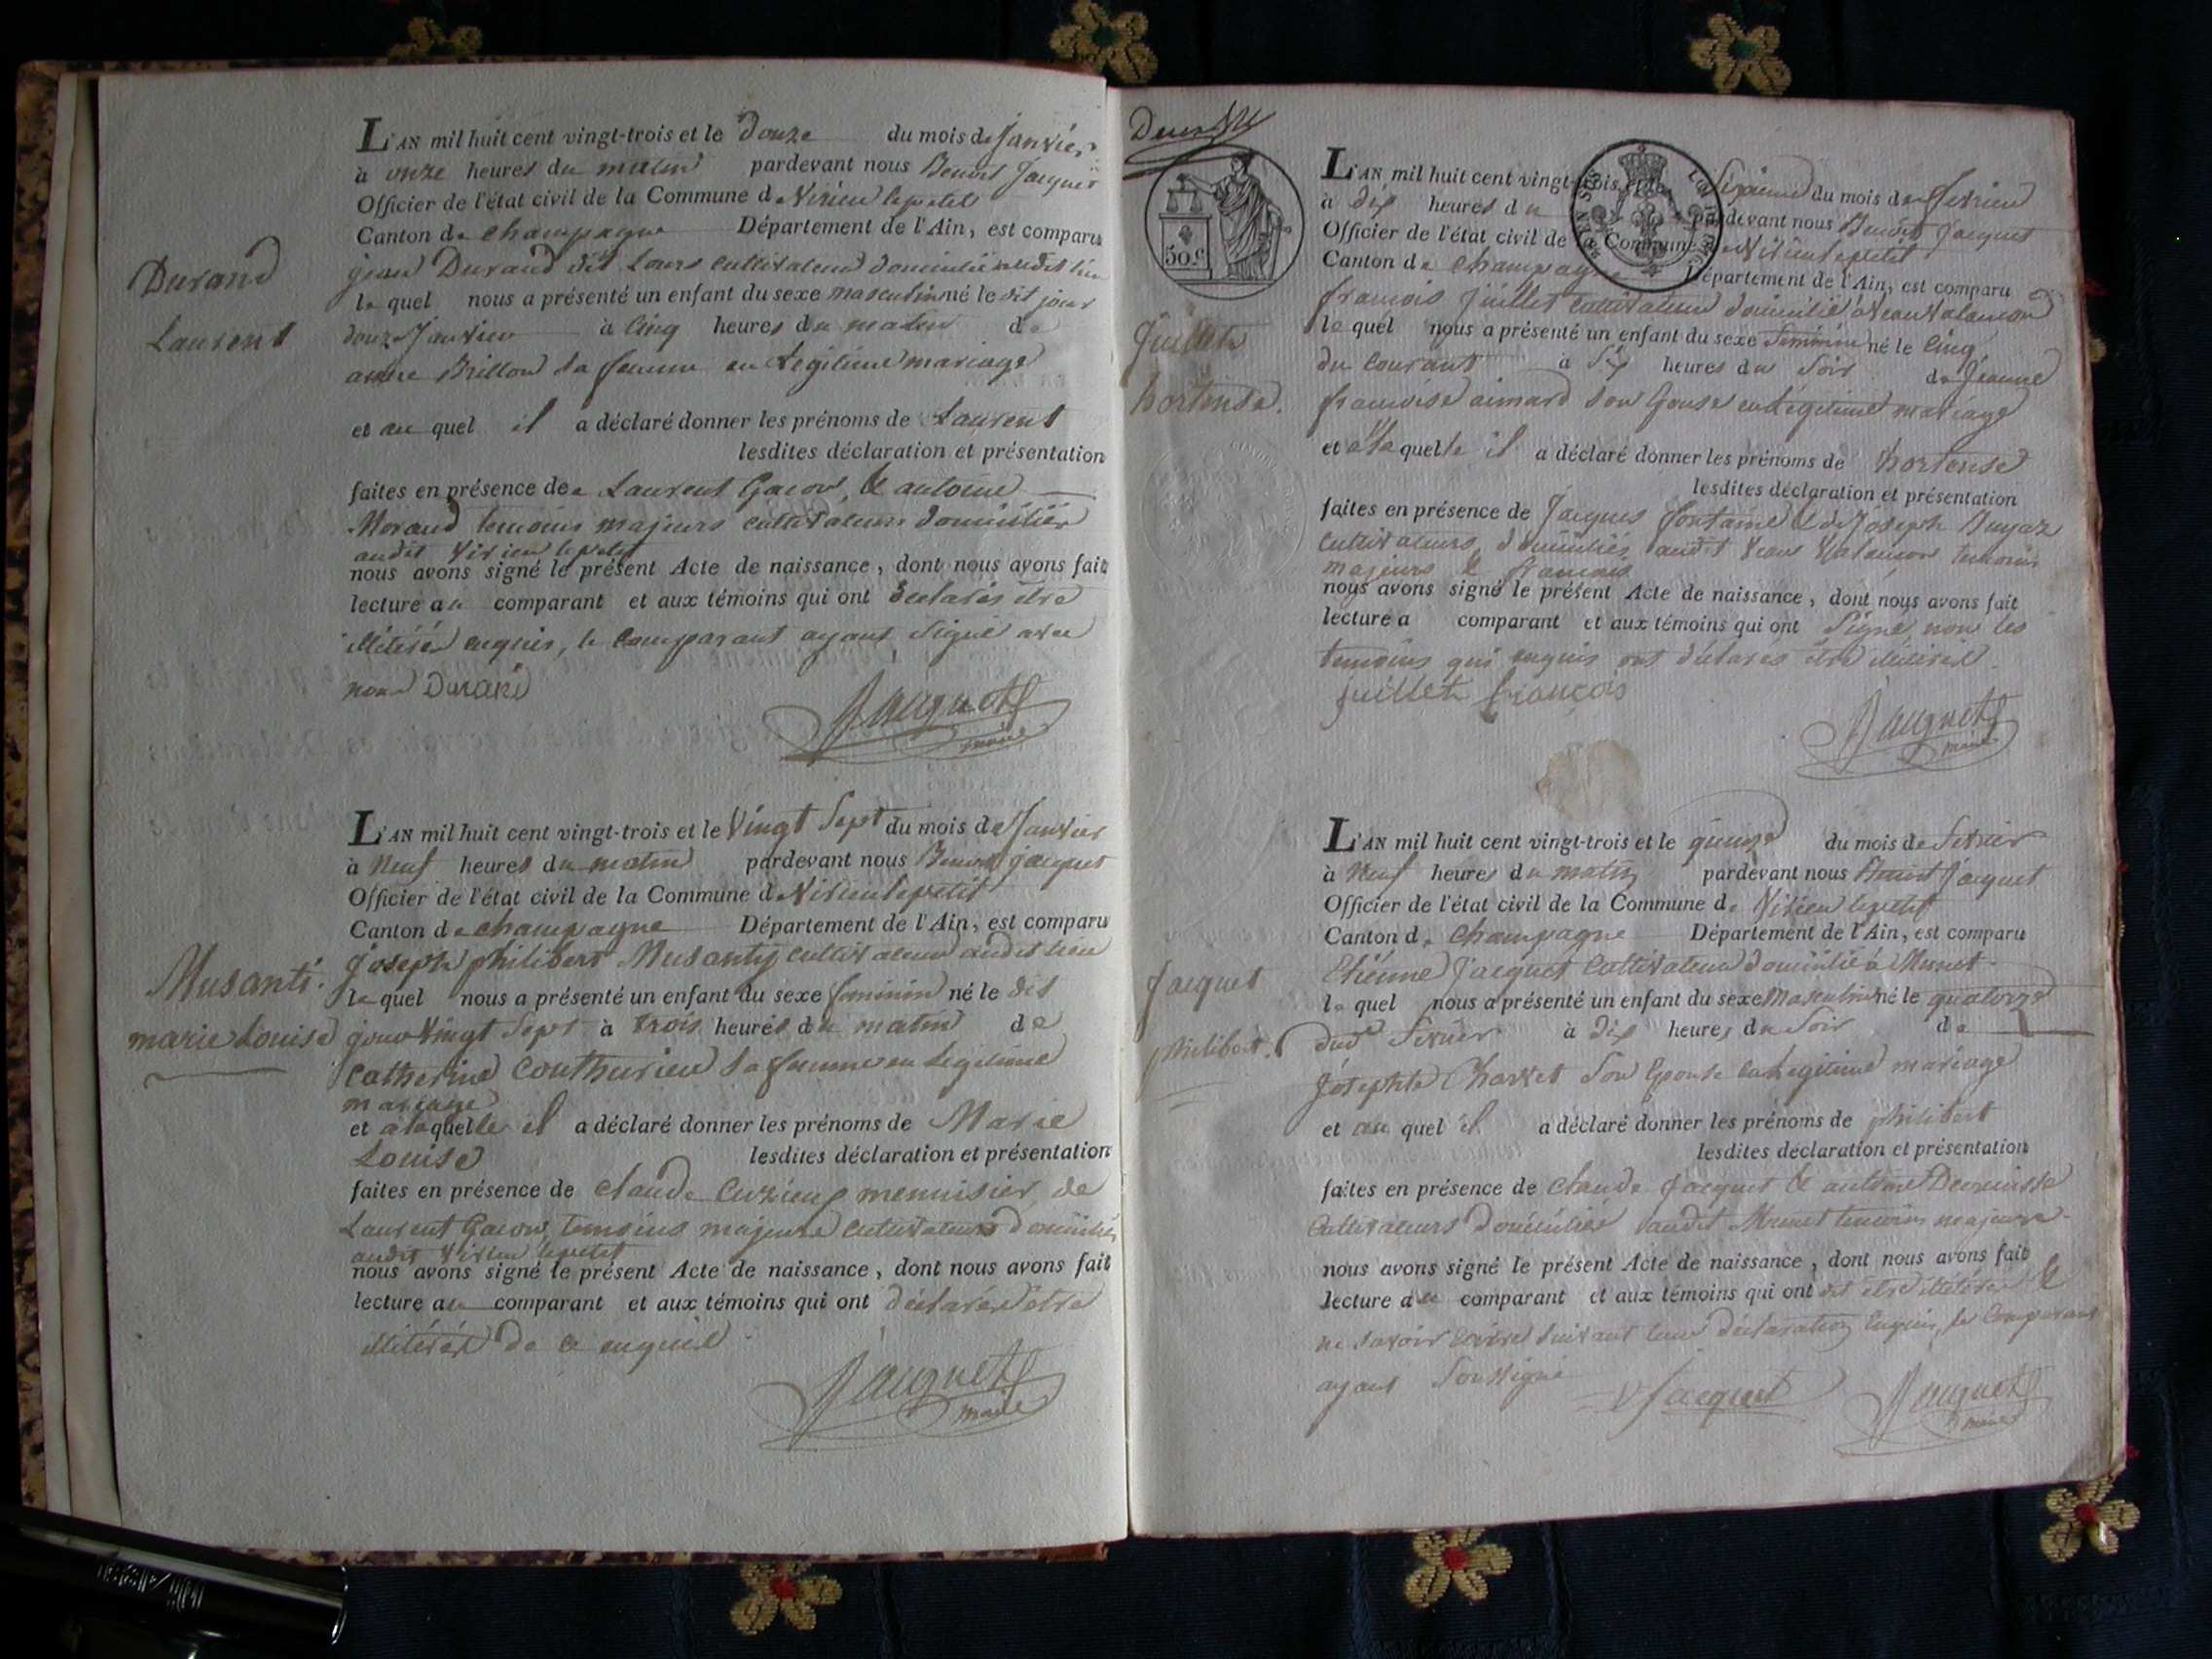 L'AN mil huit cent vingt-trois et le douze du mois de Janvier
à onze heures du matin pardevant nous Benoit Jacquet
Officier de l'état civil de la Commune de Virieu lepetit
Canton de champagne Département de l'Ain, est comparu
jean Durand dit Laurs cultivateur domicilié audit lieu
lequel nous a présenté un enfant du sexe masculin né le dit jour
Durand
Laurent
douze Janvier à cinq heures du matin de
anne Brillon sa femme en Legitime mariage
et au quel il a déclaré donner les prénoms de Laurent
lesdites déclaration et présentation
faites en présence de Laurent Gacon, & antoine
Morand temoins majeurs cultivateurs domiciliés
audit Virieu lepetit
nous avons signé le présent Acte de naissance, dont nous avons fait
lecture au comparant et aux témoins qui ont declarés etre
illitérés enquis, le comparant ayant signé avec
nous Durand
Jacquet
maire
L'AN mil huit cent vingt-trois et le Vingt Sept du mois de Janvier
à Neuf heures du matin pardevant nous Benoit jacquet
Officier de l'état civil de la Commune de Virieu lepetit
Canton de champagne Département de l'Ain, est comparu
Joseph philibert Musanty cultivateur audit lieu
lequel nous a présenté un enfant du sexe feminin né le dit
Musanti.
marie Louise
jour Vingt Sept à trois heures du matin de
Catherine Couthurieu sa femme en Legitime
mariage
et a laquelle il a déclaré donner les prénoms de Marie
Louise lesdites déclaration et présentation
faites en présence de claude Cuzieux menuisier, de
Laurent Gacon, temoins majeurs cultivateurs domiciliés
audit Virieu lepetit
nous avons signé le présent Acte de naissance, dont nous avons fait
lecture au comparant et aux témoins qui ont déclarés etre
illitérés de ce enquis
Jacquet
maire
50 c
L'AN mil huit cent vingt-trois et le Sixieme du mois de fevrier
à dix heures du pardevant nous Benoit Jacquet
Officier de l'état civil de la Commune de Virieu lepetit
Canton de champagne Département de l'Ain, est comparu
francois juillet cultivateur domicilié
lequel nous a présenté un enfant du sexe feminin né le cinq
juillet
hortense.
du courant à six heures du Soir de Jeanne
francoise aimard son Epouse en Legitime mariage
et a la quelle il a déclaré donner les prénoms de hortense
lesdites déclaration et présentation
faites en présence de Jacques fontaine & de joseph Buyaz
cultivateurs, domiciliés audit temoins
majeurs & francais
nous avons signé le présent Acte de naissance, dont nous avons fait
lecture a comparant et aux témoins qui ont Signé, non les
temoins qui enquis ont déclarés etre illitérés.
juillet francois
Jacquet
maire
L'AN mil huit cent vingt-trois et le quinze du mois de fevrier
à Neuf heures du matin pardevant nous Benoit Jacquet
Officier de l'état civil de la Commune de Virieu lepetit
Canton de Champagne Département de l'Ain, est comparu
Etiénne Jacquet cultivateur domicilié à Munet
lequel nous a présenté un enfant du sexe Masculin né le quatorze
Jacquet
philibert.
dud fevrier à dix heures du Soir de
Josephte Charvet Son Epouse en Legitime mariage
et au quel il a déclaré donner les prénoms de philibert
lesdites déclaration et présentation
faites en présence de claude Jacquet & antoine
cultivateurs domiciliés audit Munet temoins majeurs
nous avons signé le présent Acte de naissance, dont nous avons fait
lecture au comparant et aux témoins qui ont dit etre illitérés &
ne savoir ecrire suivant leur déclaration enquis, le comparant
ayant Soussigné
Jacquet
Jacquet
maire